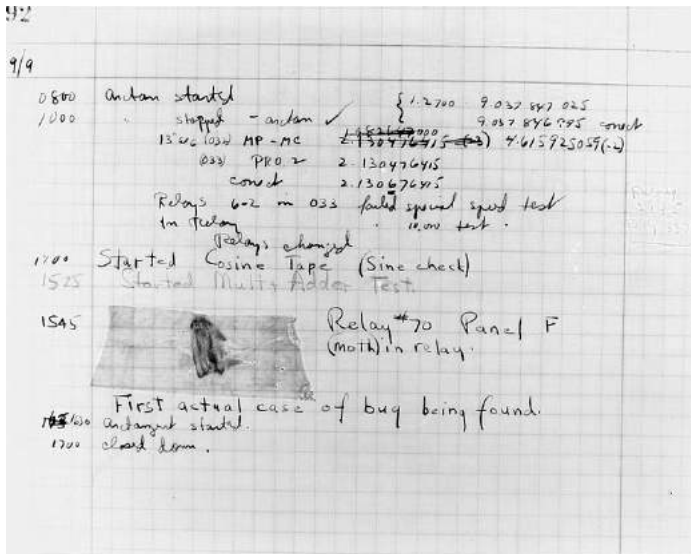 92
9/9
0800 antan started
1000 " stopped - antan ✓ { 1.2700 9.037 847 025
9.037 846 995 conect
13"uc (032) MP-MC 2.130476415 (-3) 4.615925059(-2)
(033) PRO 2 2.130476415
conect 2.130676415
Relays 6-2 in 033 failed special speed test
In Relay " 10,000 test .
Relays changed
1700 Started Cosine Tape (Sine check)
1525 Started Mult+ Adder Test.
1545 Relay #70 Panel F
(moth) in relay.
First actual case of bug being found.
1630 antangent started.
1700 closed down.